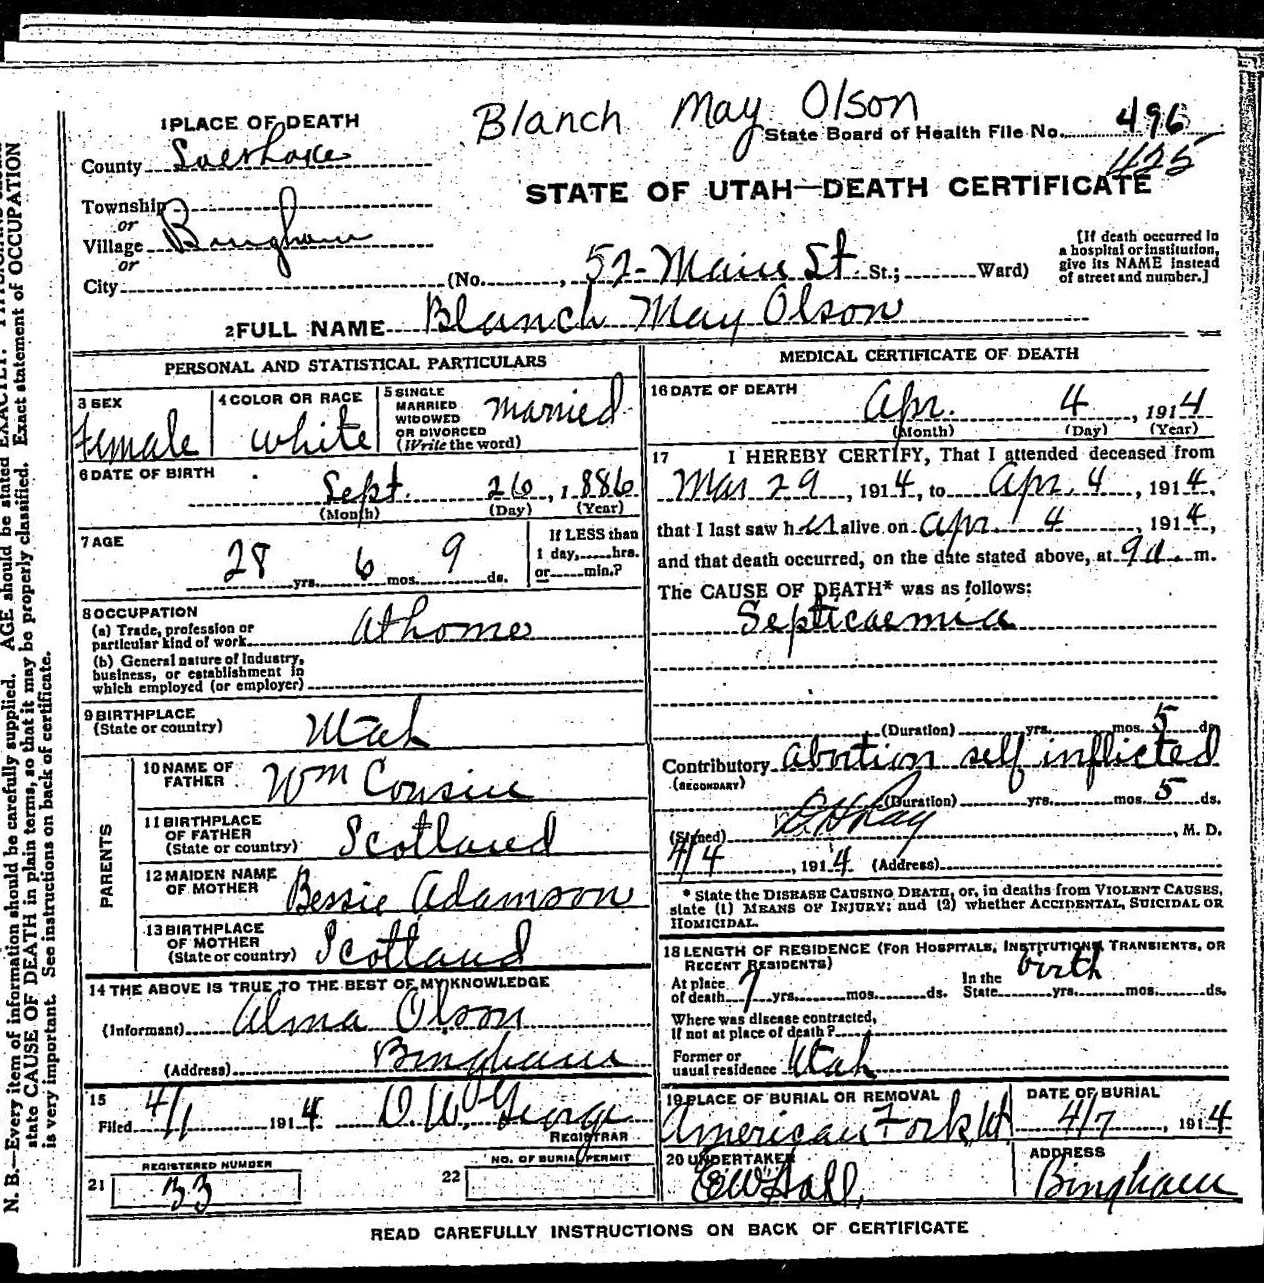 Blanch May Olson
1 PLACE OF DEATH
State Board of Health File No. 496
425
County Salt Lake
STATE OF UTAH—DEATH CERTIFICATE
Township
or
Village Bingham
or
City
(No. 52 Main St. St.; Ward)
[If death occurred in
a hospital or institution,
give its NAME instead
of street and number.]
2 FULL NAME Blanch May Olson
PERSONAL AND STATISTICAL PARTICULARS
3 SEX
Female
4 COLOR OR RACE
White
5 SINGLE
MARRIED
WIDOWED
OR DIVORCED
(Write the word)
Married
6 DATE OF BIRTH
Sept. 26, 1886
(Month) (Day) (Year)
7 AGE
28 yrs. 6 mos. 9 ds.
If LESS than
1 day, hrs.
or min.?
8 OCCUPATION
(a) Trade, profession or
particular kind of work at home
(b) General nature of industry,
business, or establishment in
which employed (or employer)
9 BIRTHPLACE
(State or country)
Utah
PARENTS
10 NAME OF
FATHER
Wm Cousin
11 BIRTHPLACE
OF FATHER
(State or country)
Scotland
12 MAIDEN NAME
OF MOTHER
Bessie Adamson
13 BIRTHPLACE
OF MOTHER
(State or country)
Scotland
14 THE ABOVE IS TRUE TO THE BEST OF MY KNOWLEDGE
(Informant) Alma Olson
(Address) Bingham
15
Filed 4/1 1914 D. W. George
REGISTRAR
REGISTERED NUMBER
21 33
NO. OF BURIAL PERMIT
22
MEDICAL CERTIFICATE OF DEATH
16 DATE OF DEATH
Apr. 4, 1914
(Month) (Day) (Year)
17 I HEREBY CERTIFY, That I attended deceased from
Mar 29, 1914, to Apr. 4, 1914,
that I last saw her alive on Apr 4, 1914,
and that death occurred, on the date stated above, at 9 a. m.
The CAUSE OF DEATH* was as follows:
Septicaemia
(Duration) yrs. mos. 5 ds.
Contributory abortion self inflicted
(SECONDARY)
(Duration) yrs. mos. 5 ds.
(Signed) Ray, M. D.
4/4, 1914 (Address)
* State the DISEASE CAUSING DEATH, or, in deaths from VIOLENT CAUSES,
state (1) MEANS OF INJURY; and (2) whether ACCIDENTAL, SUICIDAL OR
HOMICIDAL.
18 LENGTH OF RESIDENCE (FOR HOSPITALS, INSTITUTIONS, TRANSIENTS, OR
RECENT RESIDENTS)
At place
of death 7 yrs. mos. ds.
In the
State yrs. mos. ds.
birth
Where was disease contracted,
If not at place of death?
Former or
usual residence Utah
19 PLACE OF BURIAL OR REMOVAL
American Fork, Ut
DATE OF BURIAL
4/7, 1914
20 UNDERTAKER
E W Hall,
ADDRESS
Bingham
READ CAREFULLY INSTRUCTIONS ON BACK OF CERTIFICATE
N. B.—Every item of information should be carefully supplied. AGE should be stated EXACTLY.
state CAUSE OF DEATH in plain terms, so that it may be properly classified. Exact statement of OCCUPATION
is very important. See instructions on back of certificate.